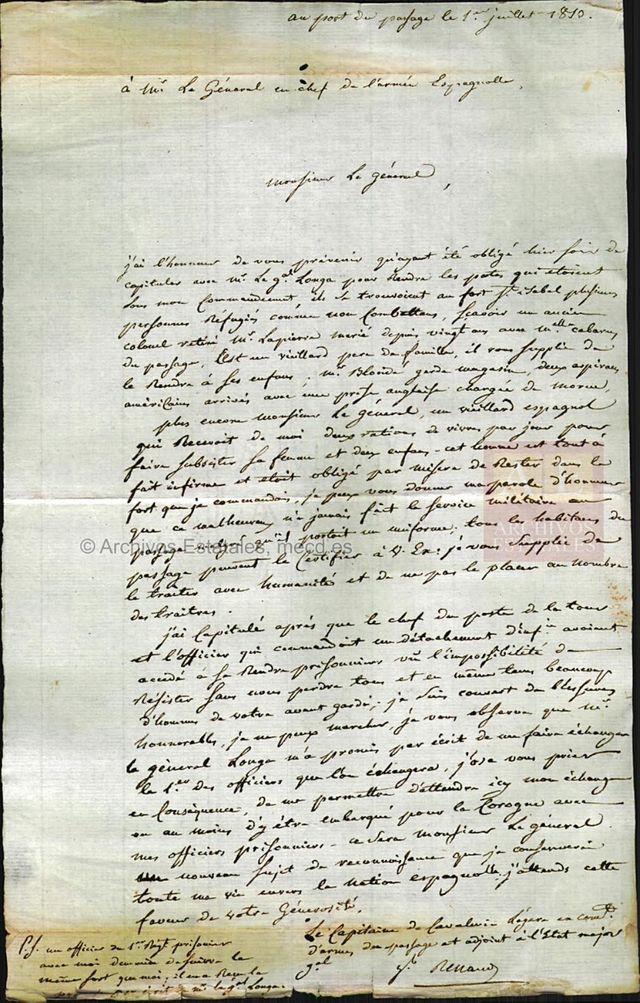 au port du passage le 1er juillet 1813.
à Mr Le Général en chef de l'armée Espagnolle,
Monsieur Le général,
j'ai l'honneur de vous prévenir qu'ayant été obligé hier soir de
capituler avec Mr Le gal Longa pour Rendre les postes qui étoient
sous mon Commandement, ils se trouvoient au fort Ste isabel plusieurs
personnes Refugiés comme non Combattans, scavoir un ancien
colonel retiré Mr Lapierre marié depuis vingt ans avec Melle cabarus
du passage, c'est un vieillard pere de famille, il vous supplie de
le Rendre à ses enfans, Mr Blondé garde magasin, deux aspirans
américains arrivés avec une prise anglaise chargée de morue,
plus encore monsieur Le général, un vieillard espagnol
qui Recevoit de moi deux rations de vivres par jour pour
faire subsister sa femme et deux enfans - cet homme est tout à
fait infirme et étoit obligé par misere de Rester dans le
fort que je commandois, je peux vous donner ma parole d'honneur
que ce malheureux n'a jamais fait le service militaire au
passage ni qu'il portoit un uniforme; tous les habitans du
passage peuvent le Certifier à V. Ex: je vous supplie de
le traiter avec humanité et de ne pas le placer au nombre
des traitres.
j'ai Capitulé après que le chef du poste de la tour
et l'officier qui commandoit un détachement d'infie avoient
accédé à se Rendre prisonniers vû l'impossibilité de
Résister sans nous perdre tous et en même tems beaucoup
d'hommes de votre avant garde; je suis couvert de blessures
honnorables, je ne peux marcher, je vous observe que Mr
le général Longa m'a promis par écrit de me faire échanger
le 1er des officiers que l'on échangera, j'ose vous prier
en Conséquence, de me permettre d'attendre icy mon échange
ou au moins d'y être embarqué pour la Corogne avec
mes officiers prisonniers - ce sera monsieur Le général
un nouveau sujet de reconnoissance que je conserverai
toute ma vie envers la nation espagnolle, j'attends cette
faveur de votre Générosité.
Le Capitaine de Cavalerie Légere en comdt
d'armes du passage et adjoint à l'Etat major
gal
Renaud
P.S. un officier du 1er Regt prisonnier
avec moi demande de suivre le
même sort que moi, il en a Reçu la
par écrit de Mr le gal Longa.
© Archivos Estatales, mecd.es
ARCHIVOS
ESTATALES